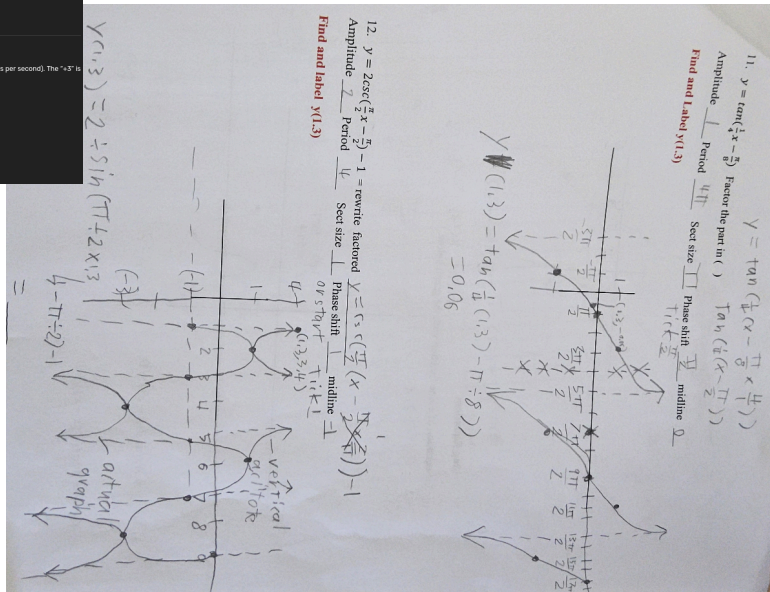 s per second). The "+3" is
11. y = tan(1/4 x − π/8) Factor the part in ( )
y = tan(1/4(x − π/8 × 4/1))
Tan(1/4(x − π/2))
Amplitude 1 Period 4π Sect size π Phase shift π/2 midline 0
Find and Label y(1.3)
Tick π/2
y(1.3) = tan(1/4(1.3) − π÷8))
= 0.06
12. y = 2csc(π/2 x − π/2) − 1 = rewrite factored y = csc(π/2(x − π/2 × 2/π)) − 1
1
Amplitude 2 Period 4 Sect size 1 Phase shift 1 midline −1
or start Tick 1
Find and label y(1.3)
4
1
(−1)
(−3)
2
3
4
5
6
7
8
9
vertical
actual
graph
y(1.3) = 2 ÷ sin(π÷2×1.3
− π÷2) − 1
=